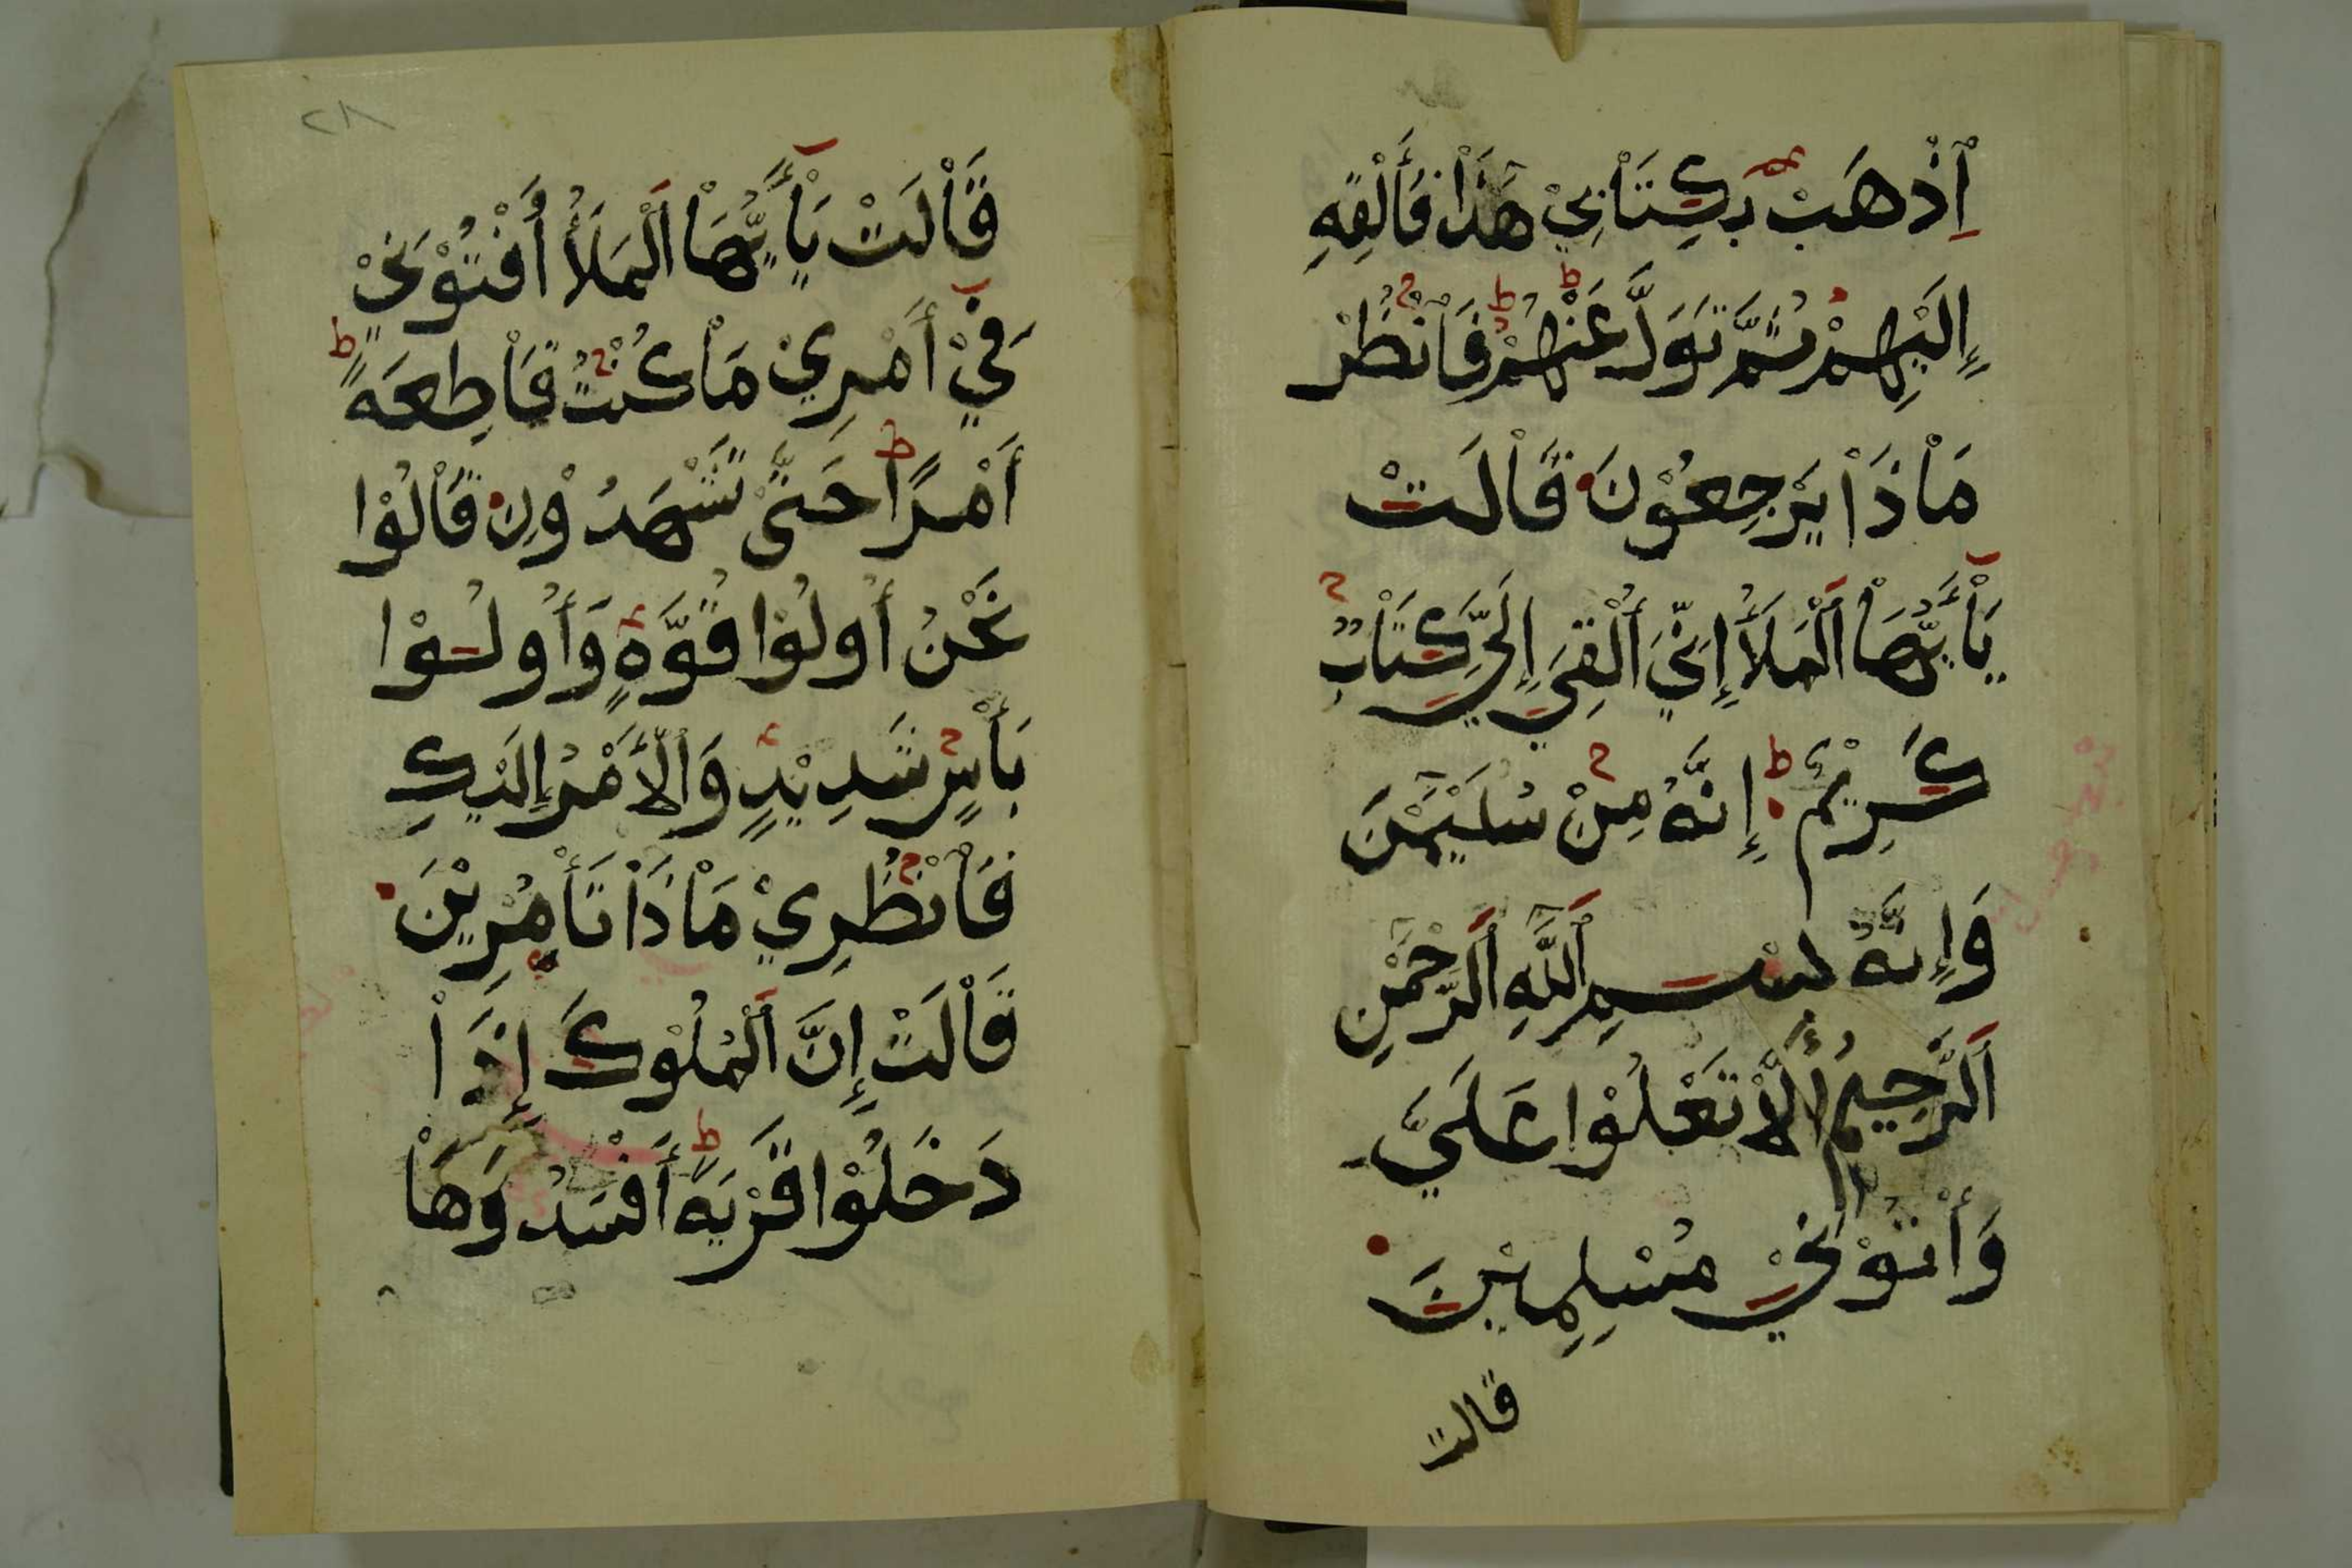 اِذْهَبْ بِكِتَابِيْ هَذَا فَأَلْقِهِ
إِلَيْهِمْ ثُمَّ تَوَلَّ عَنْهُمْ فَانْظُرْ
مَاْذَاْ يَرْجِعُوْنَ قَاْلَتْ
يَاْأَيُّهَاْ اَلْمَلَأُ إِنِّيَ أُلْقِيَ إِلَيَّ كِتَاْبٌ
كَرِيْمٌ إِنَّهُ مِنْ سُلَيْمَٰنَ
وَإِنَّهُ بِسْمِ اَللَّهِ اَلرَّحْمَٰنِ
اَلرَّحِيْمِ أَلَّاْ تَعْلُوْا عَلَيَّ
وَأْتُوْنِيْ مُسْلِمِيْنَ
قالت
٢٨
قَاْلَتْ يَاْأَيُّهَاْ اَلْمَلَأُ أَفْتُوْنِيْ
فِيْ أَمْرِيْ مَاْ كُنْتُ قَاْطِعَةً
أَمْرًا حَتَّىْ تَشْهَدُوْنِ قَاْلُوْا
نَحْنُ أُولُوْا قُوَّةٍ وَأُولُوْا
بَأْسٍ شَدِيْدٍ وَالْأَمْرُ إِلَيْكِ
فَاْنْظُرِيْ مَاْذَاْ تَأْمُرِيْنَ
قَاْلَتْ إِنَّ اَلْمُلُوْكَ إِذَاْ
دَخَلُوْا قَرْيَةً أَفْسَدُوْهَاْ